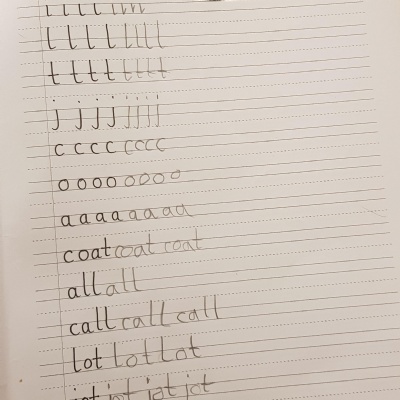 l l l l l l l l
t t t t t t t t
j j j j j j j j
c c c c c c c c
o o o o o o o o
a a a a a a a a
coat coat coat
all all
call call call
lot lot lot
jot jot jot jot